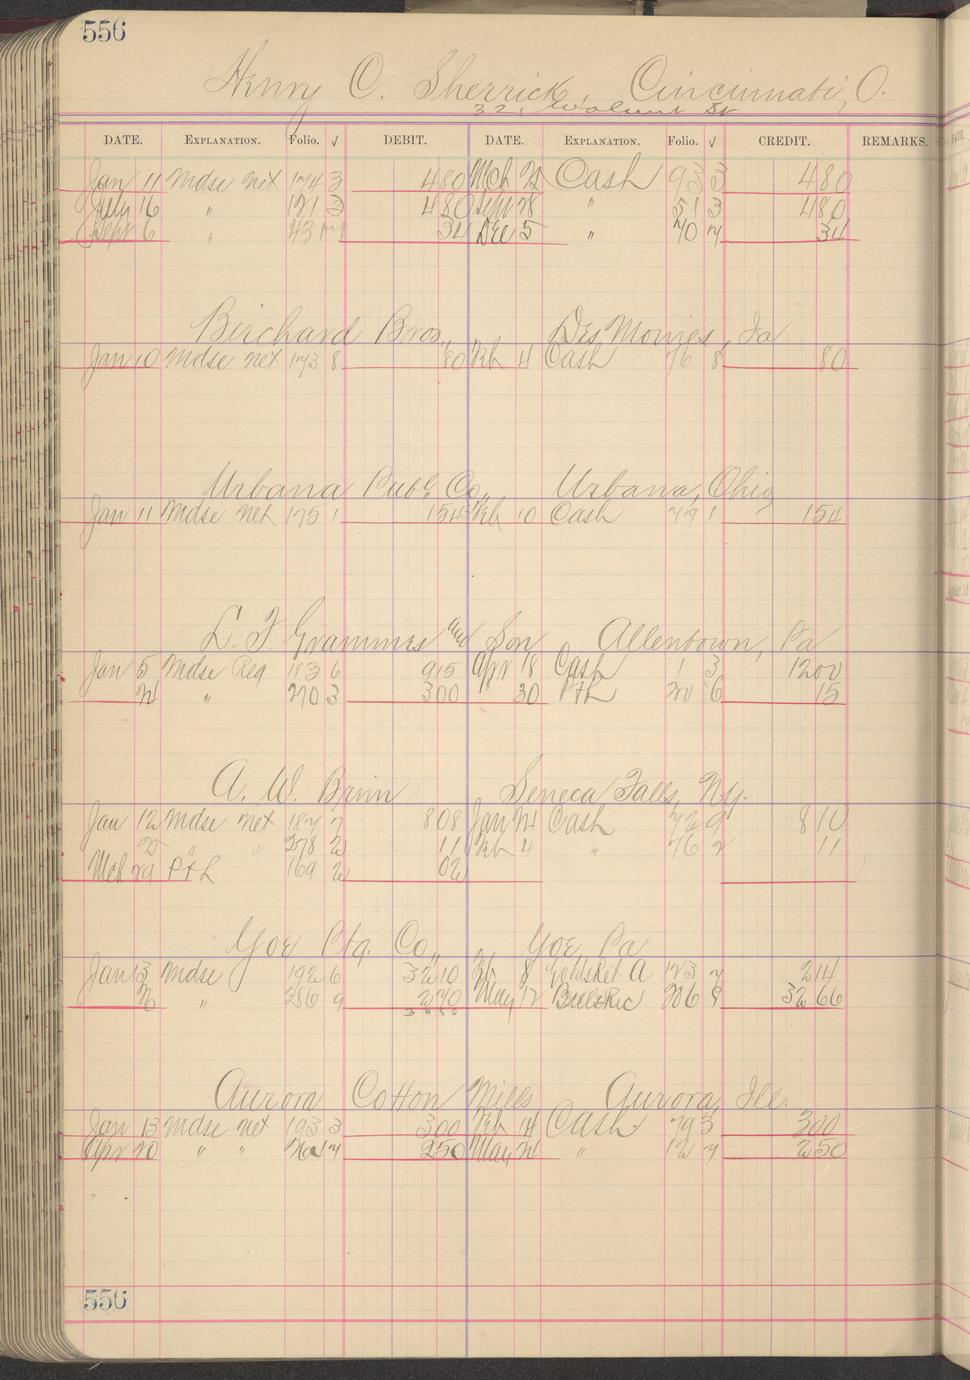 556
Henry C. Sherrick, Cincinnati, O.
32, Walnut St
DATE. EXPLANATION. Folio. √ DEBIT. DATE. EXPLANATION. Folio. √ CREDIT. REMARKS.
Jan 11 Mdse net 174 3 480 Mch Cash 93 3 480
July 16 " 121 3 480 Sept 28 " 51 3 480
Sept 6 " 43 34 Dec 5 " 70 7 34
Birchard Bros., Des Moines, Ia
Jan 10 Mdse net 173 8 80 Feb 4 Cash 76 8 80
Urbana Publ. Co., Urbana, Ohio
Jan 11 Mdse net 175 1 154 Feb 10 Cash 77 1 154
L. F. Grammes and Son Allentown, Pa
Jan 5 Mdse Reg 183 6 915 Apr 18 Cash 1 3 1200
24 " 270 3 300 30 P&L 6 15
A. W. Brim Seneca Falls, N.Y.
Jan 12 Mdse net 187 7 808 Jan 24 Cash 72 9 810
" " 278 2 11 Feb 4 " 76 2 11
Mch 29 P&L 169 2 02
Yoe Ptg. Co., Yoe Pa
Jan 13 Mdse 192 6 3210 Feb 8 Goods Ret A 123 7 214
" 286 9 270 May 12 Bills Rec 206 9 3266
Aurora Cotton Mills Aurora, Ill.
Jan 13 Mdse net 193 3 300 Feb 14 Cash 79 3 300
Apr 20 " " 7 250 May 24 " 12 7 250
556